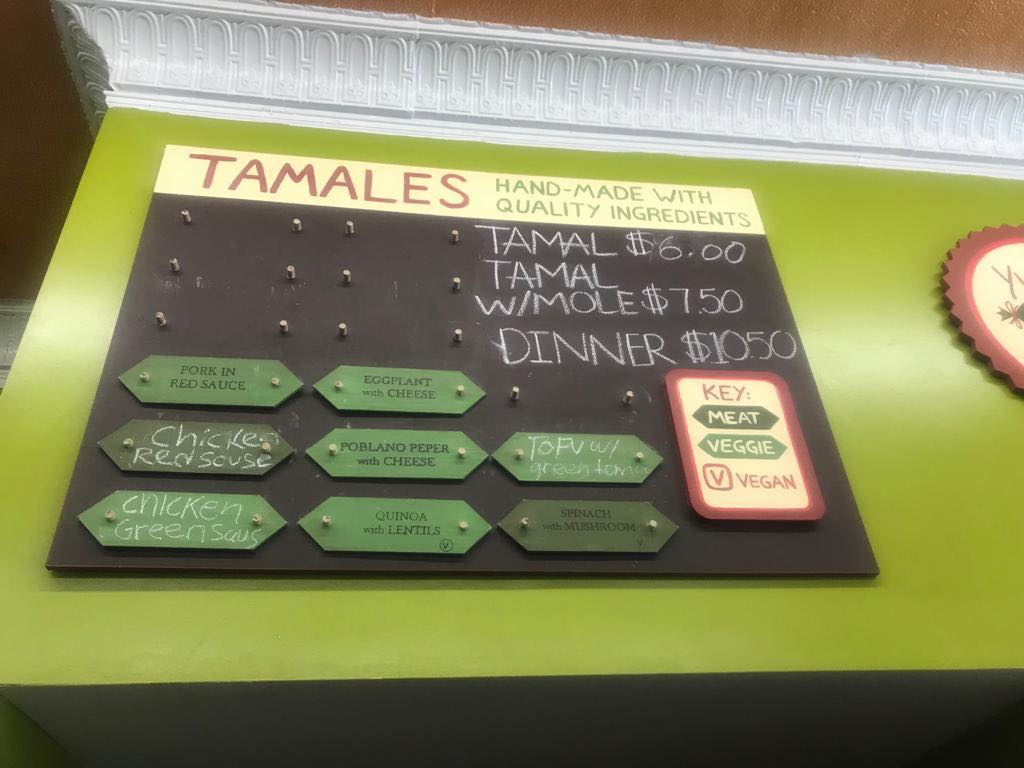 TAMALES
HAND-MADE WITH
QUALITY INGREDIENTS
TAMAL $6.00
TAMAL
W/MOLE $7.50
DINNER $10.50
PORK IN
RED SAUCE
EGGPLANT
with CHEESE
Chicken
Red souse
POBLANO PEPER
with CHEESE
TOFU w/
green toma
chicken
Green saus
QUINOA
with LENTILS
V
SPINACH
with MUSHROOM
V
KEY:
MEAT
VEGGIE
V VEGAN